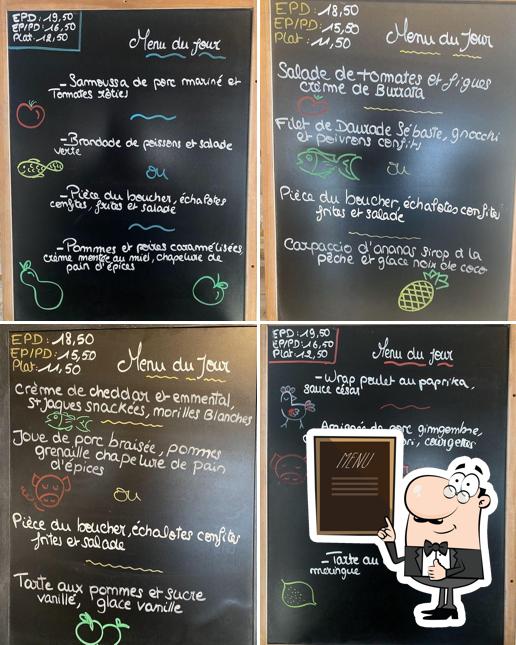 EPD: 19,50
EP/PD: 16,50
Plat: 12,50
Menu du jour
- Samoussa de porc mariné et
Tomates rôties
- Brandade de poissons et salade
verte
ou
- Pièce du boucher, échalotes
confites, frites et salade
- Pommes et poires caramélisées,
crème montée au miel, chapelure de
pain d'épices
EPD: 18,50
EP/PD: 15,50
Plat: 11,50
Menu du Jour
Salade de tomates et figues
crème de Burrata
Filet de Daurade Sébaste, gnocchi
et poivrons confits
ou
Pièce du boucher, échalotes confites
frites et salade
Carpaccio d'ananas sirop à la
pêche et glace noix de coco
EPD: 18,50
EP/PD: 15,50
Plat: 11,50
Menu du Jour
Crème de cheddar et emmental,
St Jaques snackées, morilles Blanches
Joue de porc braisée, pommes
grenaille chapelure de pain
d'épices
ou
Pièce du boucher, échalotes confites
frites et salade
Tarte aux pommes et sucre
vanille, glace vanille
EPD: 19,50
EP/PD: 16,50
Plat: 12,50
Menu du jour
- Wrap poulet au paprika,
sauce césar
porc gimgembre,
courgettes
MENU
- Tarte au
meringue